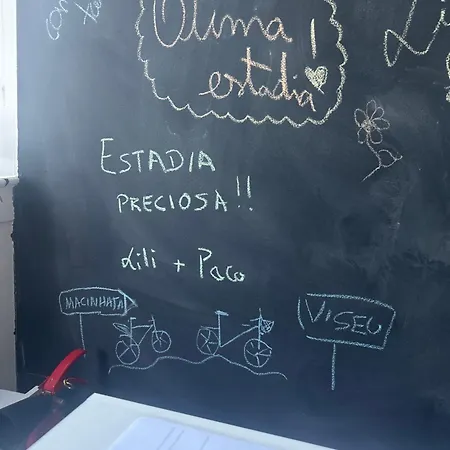 Ótima !
estadia
ESTADIA
PRECIOSA!!
Lili + Paco
MACINHATA
VISEU